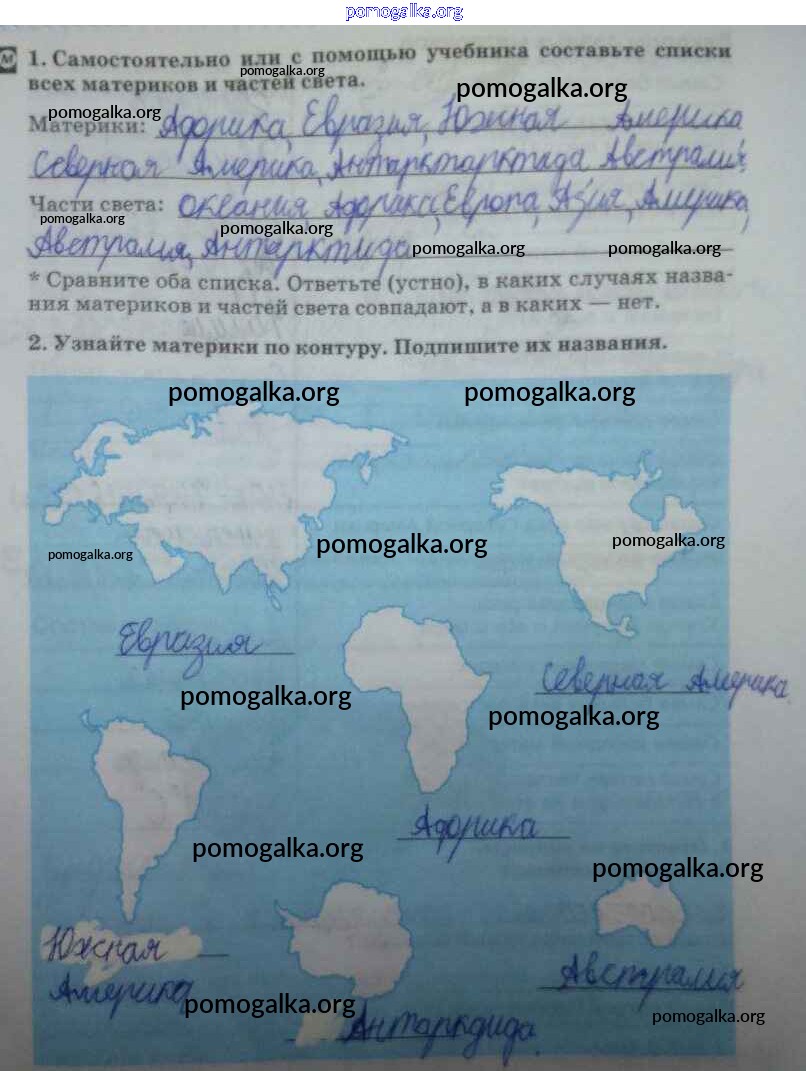 pomogalka.org
М 1. Самостоятельно или с помощью учебника составьте списки
pomogalka.org
всех материков и частей света.
pomogalka.org
pomogalka.org
Материки: Африка, Евразия, Южная Америка
Северная Америка, Антарктарктида Австралия.
Части света: Океания Африка, Европа, Азия, Америка,
pomogalka.org
pomogalka.org
Австралия, Антарктида
pomogalka.org pomogalka.org
* Сравните оба списка. Ответьте (устно), в каких случаях назва-
ния материков и частей света совпадают, а в каких — нет.
2. Узнайте материки по контуру. Подпишите их названия.
pomogalka.org pomogalka.org
pomogalka.org pomogalka.org pomogalka.org
Евразия
Северная Америка
pomogalka.org
pomogalka.org
Африка
pomogalka.org
pomogalka.org
Южная
Америка
Австралия
pomogalka.org
pomogalka.org
Антаркдида